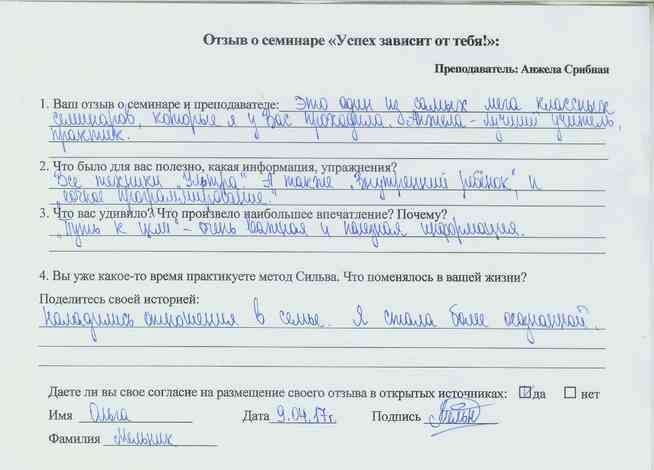 Отзыв о семинаре «Успех зависит от тебя!»:
Преподаватель: Анжела Срибная
1. Ваш отзыв о семинаре и преподавателе: Это один из самых мега классных
семинаров, которые я у Вас проходила. Анжела - лучший учитель,
практик.
2. Что было для вас полезно, какая информация, упражнения?
Все техники "Ультра". А также "Внутренний ребёнок", и
"ночное программирование."
3. Что вас удивило? Что произвело наибольшее впечатление? Почему?
"Путь к цели" - очень важная и полезная информация.
4. Вы уже какое-то время практикуете метод Сильва. Что поменялось в вашей жизни?
Поделитесь своей историей:
Наладились отношения в семье. Я стала более осознанной.
Даете ли вы свое согласие на размещение своего отзыва в открытых источниках: да нет
Имя Ольга Дата 9.04.17г. Подпись
Фамилия Мельник